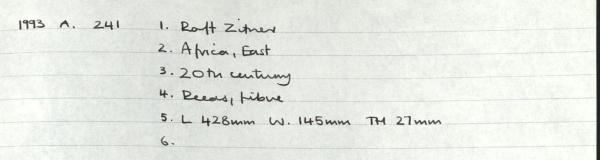 1993 A. 241 1. Raft Zither
2. Africa, East
3. 20th century
4. Reeds, fibre
5. L 428mm W. 145mm TH 27mm
6.